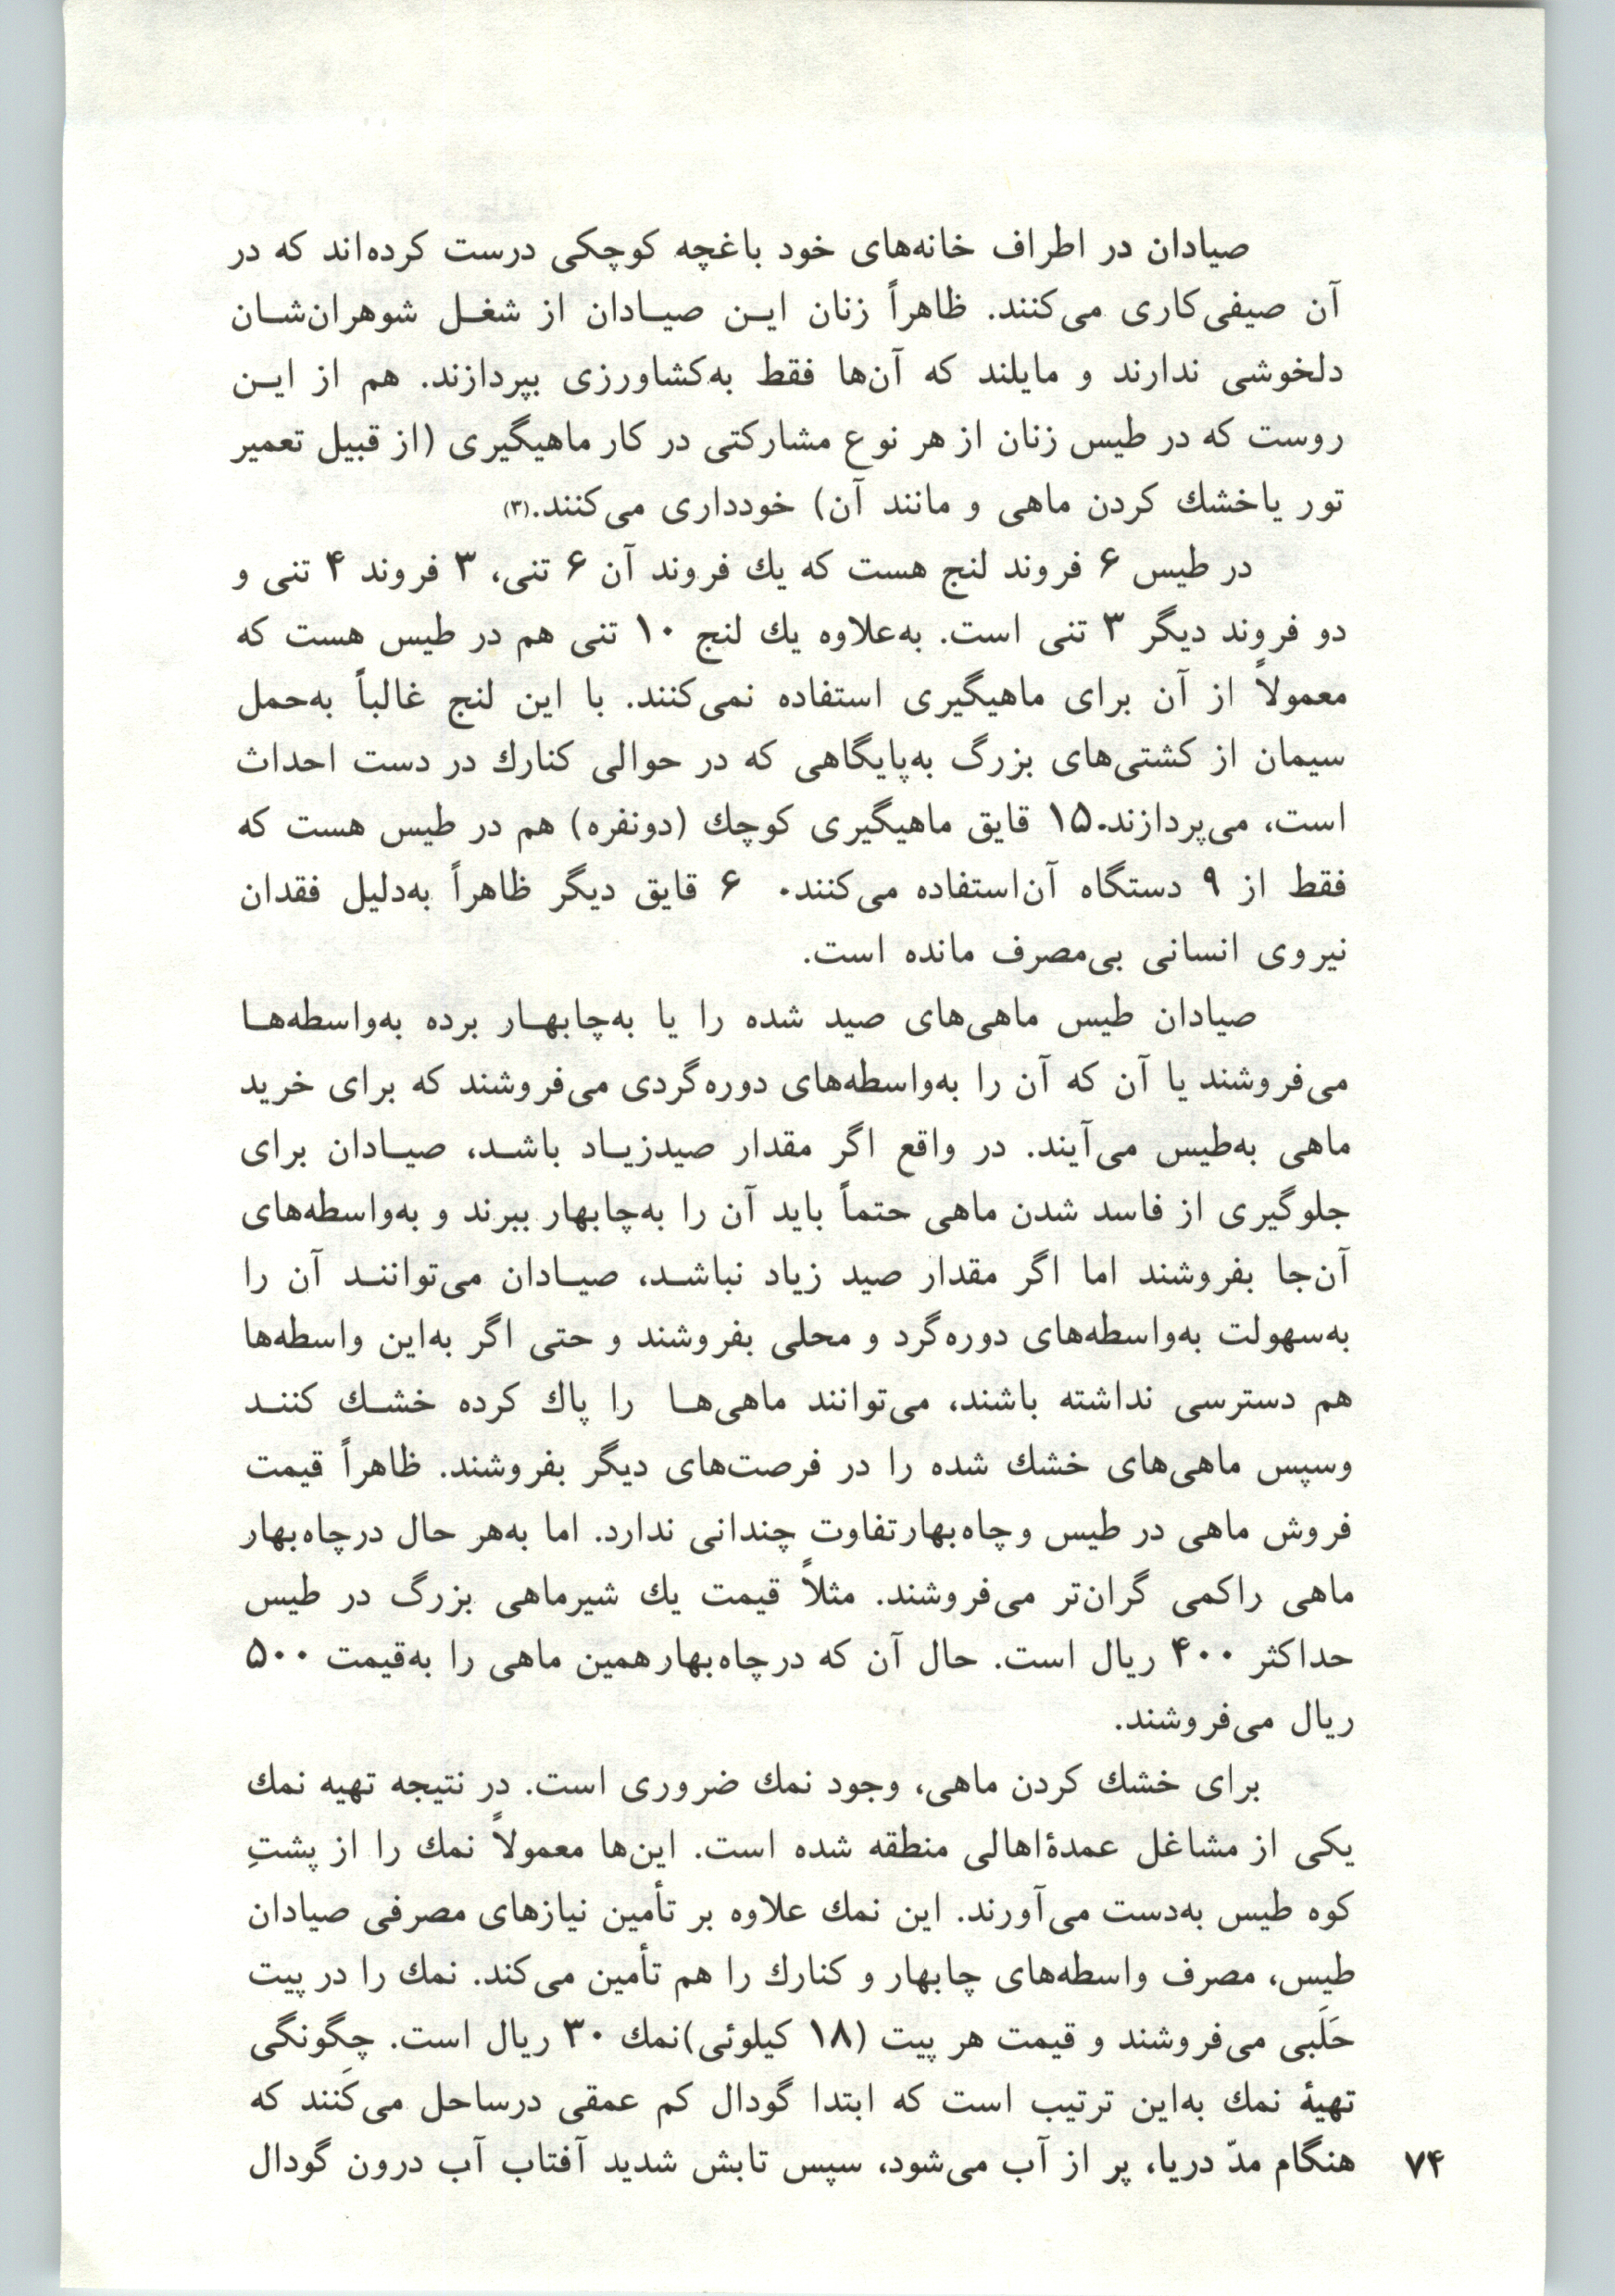 صیادان در اطراف خانه‌های خود باغچه کوچکی درست کرده‌اند که در
آن صیفی‌کاری می‌کنند. ظاهراً زنان ایـن صیـادان از شغـل شوهران‌شـان
دلخوشی ندارند و مایلند که آن‌ها فقط به‌کشاورزی بپردازند. هم از ایـن
روست که در طیس زنان از هر نوع مشارکتی در کار ماهیگیری (از قبیل تعمیر
تور یاخشك کردن ماهی و مانند آن) خودداری می‌کنند.(۳)
در طیس ۶ فروند لنج هست که یك فروند آن ۶ تنی، ۳ فروند ۴ تنی و
دو فروند دیگر ۳ تنی است. به‌علاوه یك لنج ۱۰ تنی هم در طیس هست که
معمولاً از آن برای ماهیگیری استفاده نمی‌کنند. با این لنج غالباً به‌حمل
سیمان از کشتی‌های بزرگ به‌پایگاهی که در حوالی کنارك در دست احداث
است، می‌پردازند.۱۵ قایق ماهیگیری کوچك (دونفره) هم در طیس هست که
فقط از ۹ دستگاه آن‌استفاده می‌کنند. ۶ قایق دیگر ظاهراً به‌دلیل فقدان
نیروی انسانی بی‌مصرف مانده است.
صیادان طیس ماهی‌های صید شده را یا به‌چابهـار برده به‌واسطه‌هـا
می‌فروشند یا آن که آن را به‌واسطه‌های دوره‌گردی می‌فروشند که برای خرید
ماهی به‌طیس می‌آیند. در واقع اگر مقدار صیدزیـاد باشـد، صیـادان برای
جلوگیری از فاسد شدن ماهی حتماً باید آن را به‌چابهار ببرند و به‌واسطه‌های
آن‌جا بفروشند اما اگر مقدار صید زیاد نباشـد، صیـادان می‌تواننـد آن را
به‌سهولت به‌واسطه‌های دوره‌گرد و محلی بفروشند و حتی اگر به‌این واسطه‌ها
هم دسترسی نداشته باشند، می‌توانند ماهی‌هـا را پاك کرده خشـك کننـد
وسپس ماهی‌های خشك شده را در فرصت‌های دیگر بفروشند. ظاهراً قیمت
فروش ماهی در طیس وچاه‌بهارتفاوت چندانی ندارد. اما به‌هر حال درچاه‌بهار
ماهی راکمی گران‌تر می‌فروشند. مثلاً قیمت یك شیرماهی بزرگ در طیس
حداکثر ۴۰۰ ریال است. حال آن که درچاه‌بهارهمین ماهی را به‌قیمت ۵۰۰
ریال می‌فروشند.
برای خشك کردن ماهی، وجود نمك ضروری است. در نتیجه تهیه نمك
یکی از مشاغل عمدهٔ‌اهالی منطقه شده است. این‌ها معمولاً نمك را از پشتِ
کوه طیس به‌دست می‌آورند. این نمك علاوه بر تأمین نیازهای مصرفی صیادان
طیس، مصرف واسطه‌های چابهار و کنارك را هم تأمین می‌کند. نمك را در پیت
حَلَبی می‌فروشند و قیمت هر پیت (۱۸ کیلوئی)نمك ۳۰ ریال است. چگونگی
تهیهٔ نمك به‌این ترتیب است که ابتدا گودال کم عمقی درساحل می‌کَنند که
هنگام مدّ دریا، پر از آب می‌شود، سپس تابش شدید آفتاب آب درون گودال
۷۴